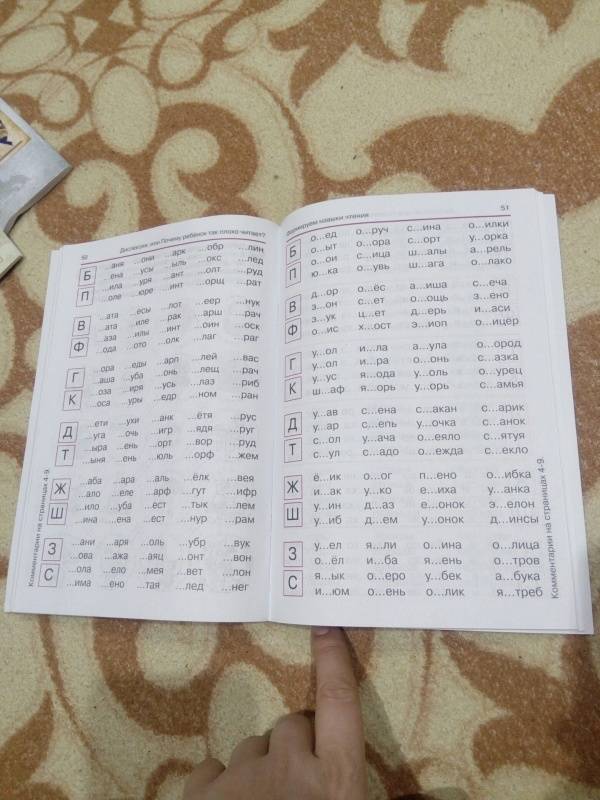 50 Дислексия, или Почему ребёнок так плохо читает?
Б
П
...аня ...они ...арк ...обр ...лин
...ена ...усы ...ыль ...окс ...лёд
...ила ...уря ...ант ...олт ...руд
...оле ...юре ...инт ...орщ ...рат
В
Ф
...ата ...есы ...лот ...еер ...нук
...ата ...иле ...рак ...арш ...рач
...аза ...илы ...инт ...оин ...оск
...ода ...ото ...олк ...лаг ...раг
Г
К
...ора ...еды ...арп ...лей ...вас
...аша ...уба ...онь ...лещ ...рач
...оза ...иря ...усь ...лаз ...риб
...оса ...уры ...едр ...ном ...ран
Д
Т
...ети ...ухи ...анк ...ётя ...рус
...уга ...очь ...игр ...ядя ...руг
...ыра ...ень ...орт ...вор ...руд
...ыня ...ень ...юль ...орф ...жем
Ж
Ш
...аба ...ара ...аль ...ёлк ...вея
...ало ...еле ...арф ...гут ...ифр
...ило ...уба ...ест ...тык ...лем
...ина ...ена ...ест ...нур ...рам
З
С
...ани ...аря ...оль ...убр ...вук
...ова ...ажа ...аяц ...онт ...вон
...ола ...ело ...мея ...вет ...лон
...има ...ено ...тая ...лед ...нег
Комментарии на страницах 4-9.
Формируем навыки чтения 51
Б
П
о...ед о...руч с...ина о...илки
о...ыт о...ора с...орт у...орка
о...ои с...ица ш...алы а...рель
ю...ка о...увь ш...ага о...лако
В
Ф
д...ор о...ёс а...иша с...еча
з...он с...ет о...ощь з...ено
з...ук ц...ет д...ерь и...аси
о...ис х...ост э...иоп о...ицер
Г
К
у...ол и...ла а...ула о...ород
у...ол и...ра о...онь с...азка
у...ус я...ода у...оль о...урец
ш...аф я...орь у...орь с...амья
Д
Т
у...ав с...ена с...акан с...арик
у...ар с...епь у...очка с...анок
с...ол у...ача о...еяло с...ятуя
с...ул с...адо о...ежда с...екло
Ж
Ш
ё...ик о...ог п...ено о...ибка
и...ак у...ко е...иха у...анка
у...ин д...аз е...онок э...елон
у...иб д...ем у...онок д...инсы
З
С
у...ел я...ли о...ина о...лица
о...ёл и...ба я...ень о...тров
я...ык о...еро у...бек а...бука
и...юм о...ень о...лик я...треб
Комментарии на страницах 4-9.